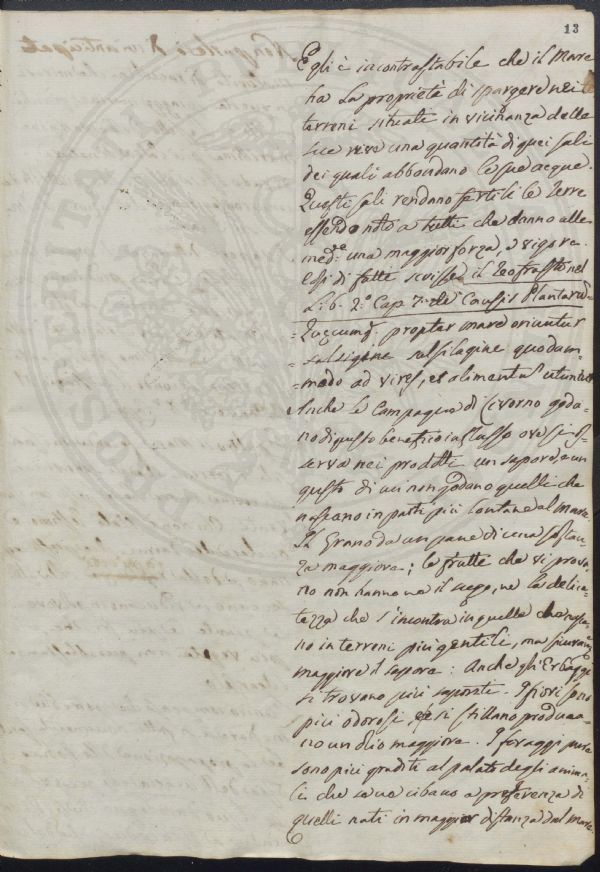 13
Egli è incontrastabile che il Mare
ha la proprietà di spargere nei
terreni situati in vicinanza delle
sue rive una quantità di quei sali
dei quali abbondano le sue acque.
Questi sali rendono fertili le Terre
essendo noto a tutti che danno alle
med:e una maggior forza, e vigore.
Così di fatte scrisse il Teofrasto nel
Lib. 2.o Cap. 7. de Causis Plantarū=
=Quęcumq. propter mare oriuntur
salsilagine quodam=
=modo ad vires, et alimentū utuntur
Anche le Campagne di Livorno godo=
=no di questo benefico
=serva nei prodotti un sapore, e un
gusto di cui non godano quelli che
nascano in parti più lontane al mare.
Il Grano da un pane di una sostan=
za maggiore; le frutte che vi prova
no non hanno ne il sugo, ne la delica=
tezza che s'incontra in quelle che nasco
no in terreni più gentili, ma sicuram.e
maggiore il sapore: Anche gli Erbaggi
si trovano più saporiti. I fiori sono
più odorosi e si stillano produco
no un olio maggiore. I foraggi pure
sono più graditi al palato degli anima=
li, che se ne cibano a preferenza di
quelli nati in maggior distanza dal mare.